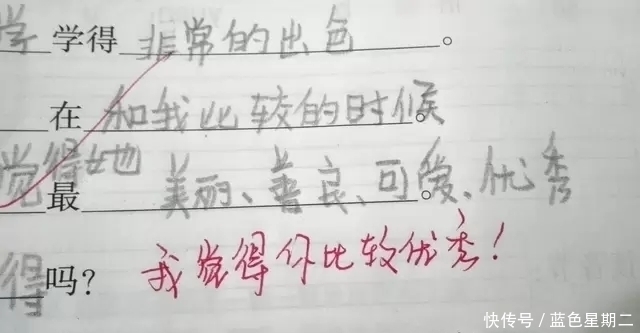 学 学得非常的出色。
在和我比较的时候。
觉得她最美丽、善良、可爱、优秀。
得吗?我觉得你比较优秀!
快传号/蓝色星期二